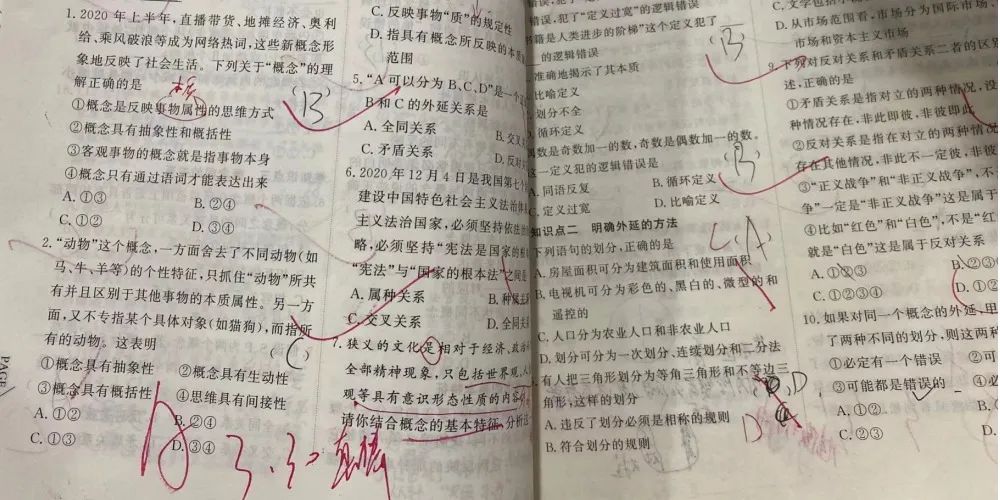 1. 2020 年上半年,直播带货、地摊经济、奥利
给、乘风破浪等成为网络热词,这些新概念形
象地反映了社会生活。下列关于“概念”的理
解正确的是
(B)
①概念是反映事物属性的思维方式
②概念具有抽象性和概括性
③客观事物的概念就是指事物本身
④概念只有通过语词才能表达出来
A. ①③ B. ②④
C. ①② D. ③④
2. “动物”这个概念,一方面舍去了不同动物(如
马、牛、羊等)的个性特征,只抓住“动物”所共
有并且区别于其他事物的本质属性。另一方
面,又不专指某个具体对象(如猫狗),而指所
有的动物。这表明
(C)
①概念具有抽象性 ②概念具有生动性
③概念具有概括性 ④思维具有间接性
A. ①② B. ②④
C. ①③ D. ③④
3.30
C. 反映事物“质”的规定性
D. 指具有概念所反映的本质
范围
5. “A 可以分为 B、C、D”是一个
B 和 C 的外延关系是
A. 全同关系 B. 交叉
C. 矛盾关系 D. 反对
6. 2020 年 12 月 4 日是我国第七个
建设中国特色社会主义法治体
主义法治国家,必须坚持依法
略,必须坚持“宪法是国家的根
“宪法”与“国家的根本法”之间是
A. 属种关系 B. 种属关
C. 交叉关系 D. 全同关
7. 狭义的文化是相对于经济、政治
全部精神现象,只包括世界观、人
观等具有意识形态性质的内容
请你结合概念的基本特征,分析这
错误,犯了“定义过宽”的逻辑错误
书籍是人类进步的阶梯”这个定义犯了
的逻辑错误
(B)
准确地揭示了其本质
比喻定义
划分不全
循环定义
偶数是奇数加一的数,奇数是偶数加一的数。
这一定义犯的逻辑错误是
(B)
A. 同语反复 B. 循环定义
C. 定义过宽 D. 比喻定义
知识点二 明确外延的方法
下列语句的划分,正确的是
C(A)
A. 房屋面积可分为建筑面积和使用面积
B. 电视机可分为彩色的、黑白的、微型的和
遥控的
C. 人口分为农业人口和非农业人口
D. 划分可分为一次划分、连续划分和二分法
有人把三角形划分为等角三角形和不等边三
角形,这样的划分
D
D
A. 违反了划分必须是相称的规则
B. 符合划分的规则
D. 从市场范围看,市场分为国际市场、
市场和资本主义市场
9. 下列对反对关系和矛盾关系二者的区别
述,正确的是
①矛盾关系是指对立的两种情况,没
种情况存在,非此即彼,非彼即此
②反对关系是指在对立的两种情况
存在其他情况,非此不一定彼,非彼
③“正义战争”和“非正义战争”,不
争”一定是“非正义战争”这是属于
④比如“红色”和“白色”,不是“红
就是“白色”这是属于反对关系
A. ①②③ B. ②③
C. ①②③④ D. ①②
10. 如果对同一个概念的外延,甲
了两种不同的划分,则这两种
①必定有一个错误 ②可
③可能都是错误的 ④必
A. ①② B.
C. ②③ D.
PAGE